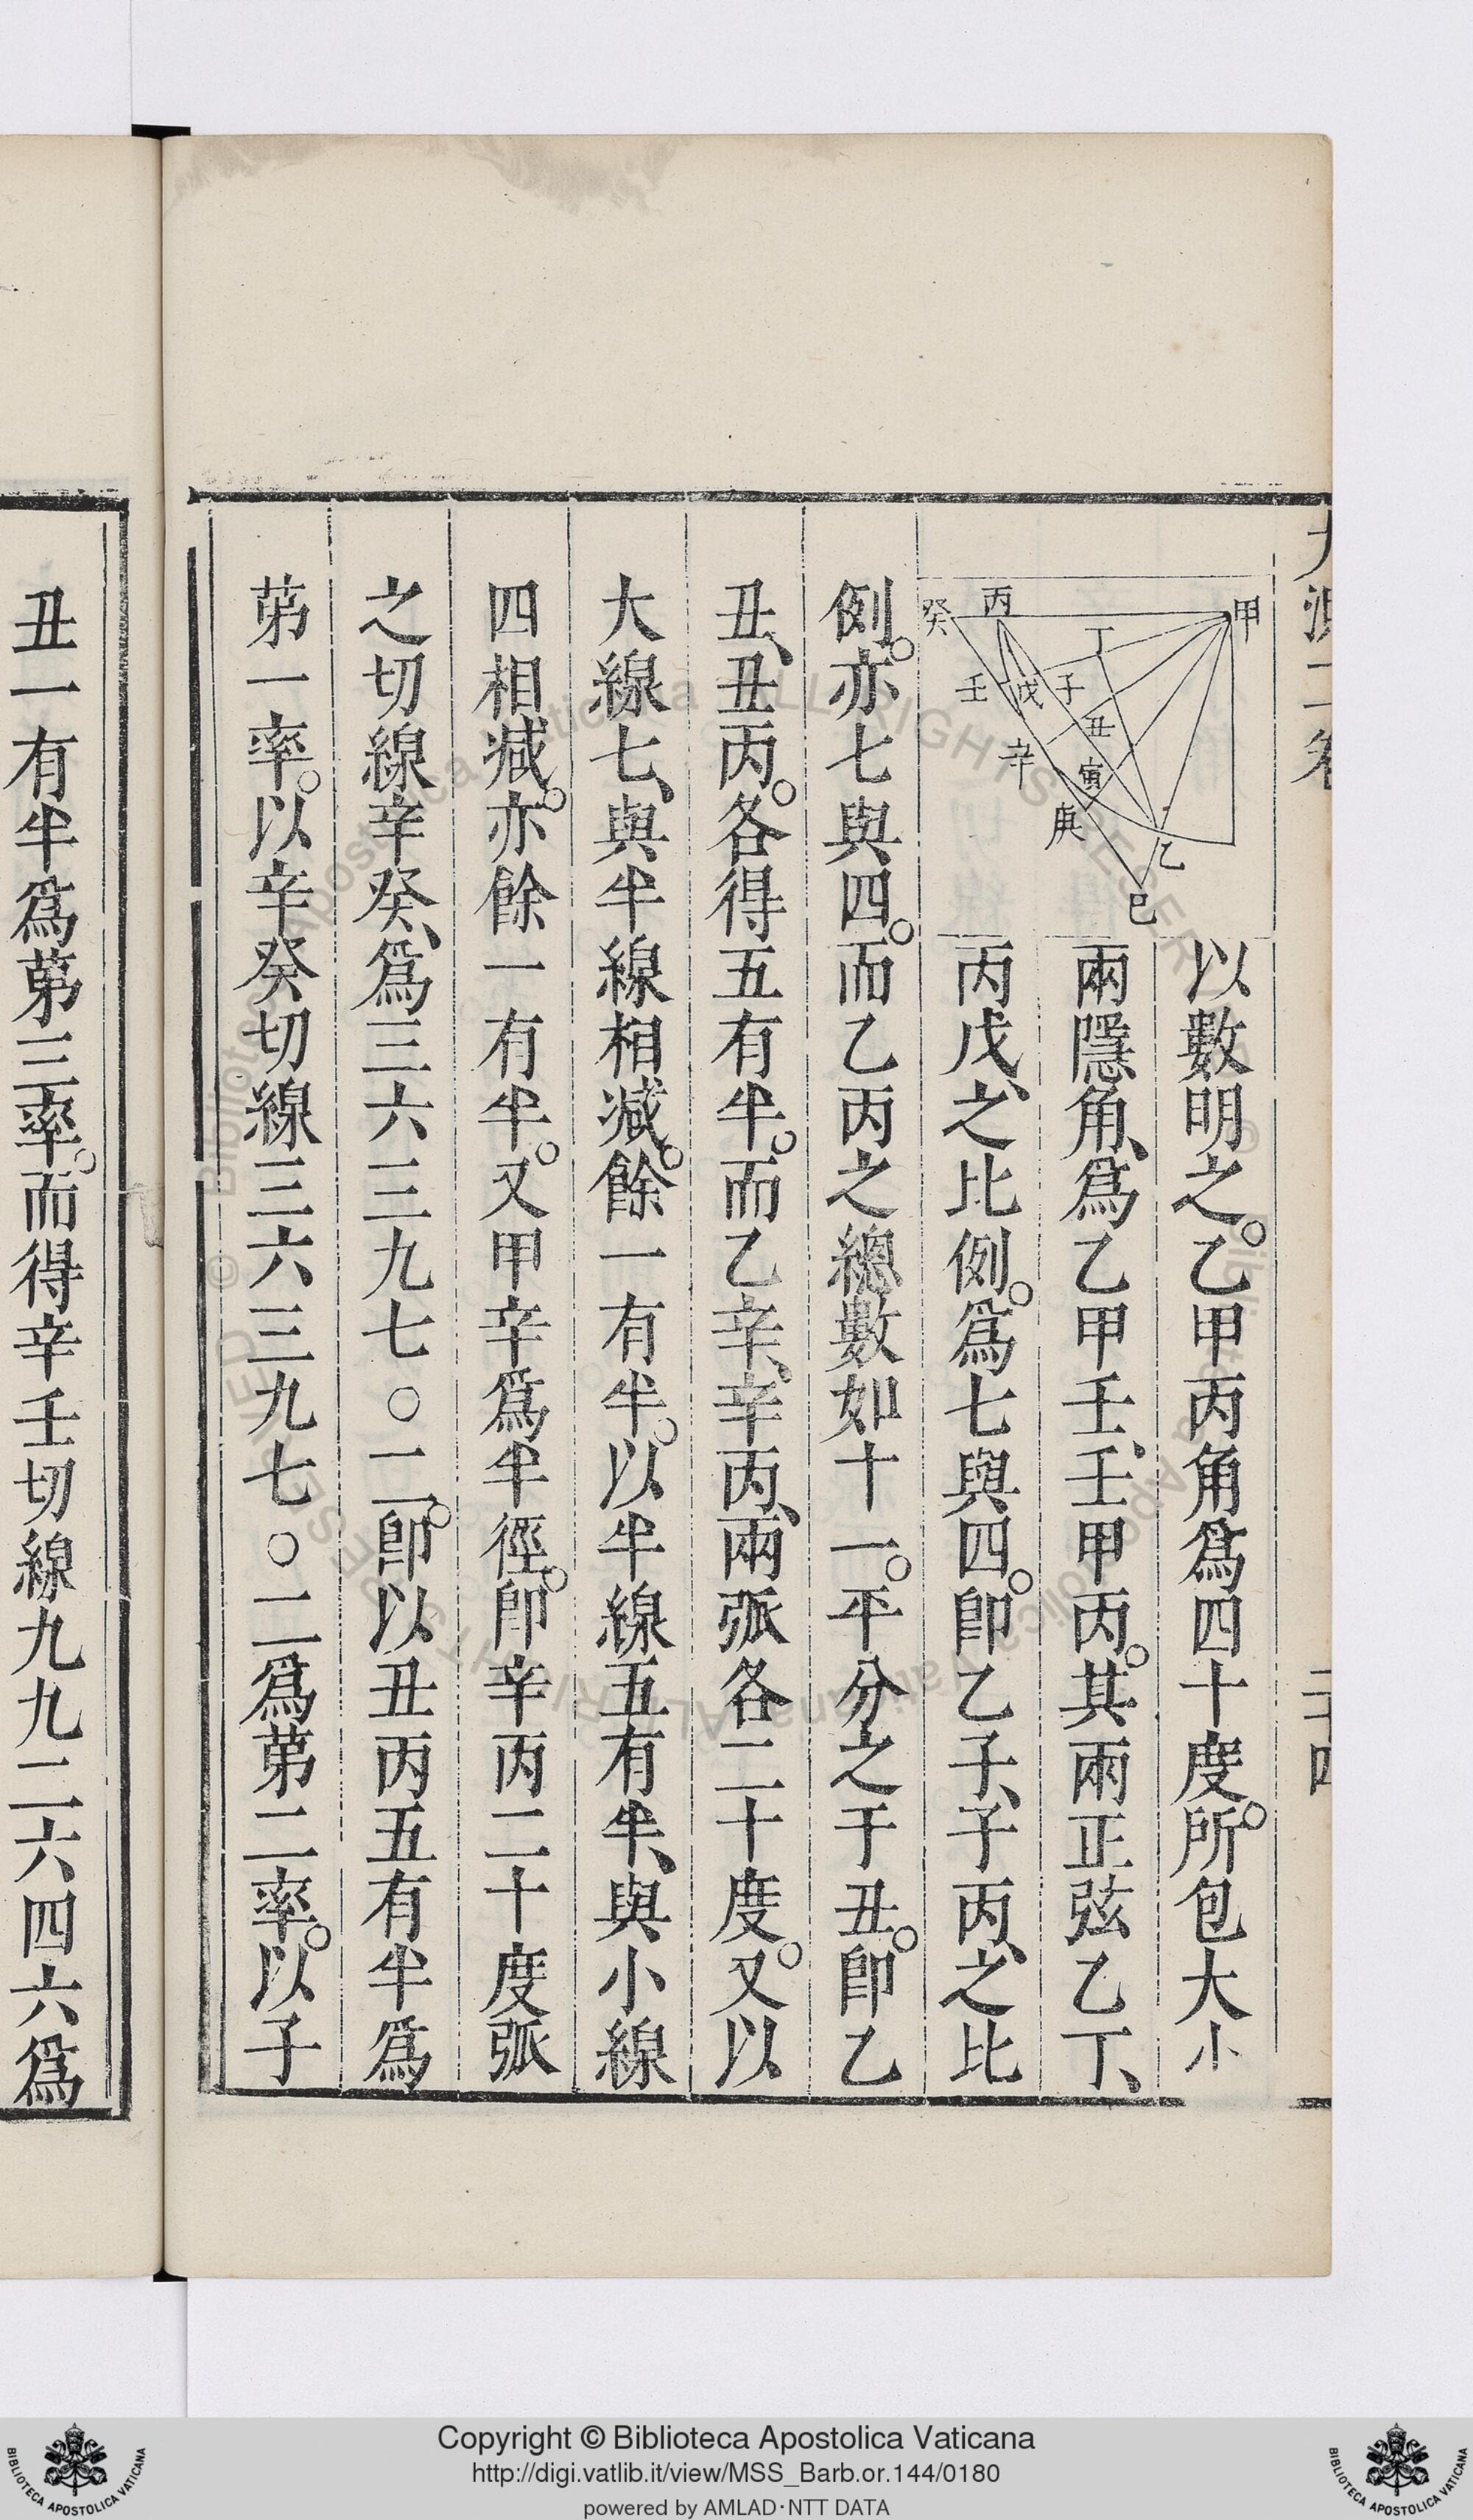 以數明之。乙甲丙角爲四十度。所包大小
兩隱角、爲乙甲壬、壬甲丙。其兩正弦乙丁、
丙戊、之比例。爲七與四。卽乙子、子丙、之比
例。亦七與四。而乙丙之總數如十一。平分之于丑。卽乙
丑、丑丙。各得五有半。而乙辛、辛丙、兩弧各二十度。又以
大線七、與半線相減。餘一有半。以半線五有半、與小線
四相減。亦餘一有半。又甲辛爲半徑。卽辛丙二十度弧
之切線辛癸、爲三六三九七〇二。卽以丑丙五有半爲
第一率。以辛癸切線三六三九七〇二爲第二率。以子
丑一有半爲第三率。而得辛壬切線九九二六四六爲
甲
乙
丙
丁
戊
己
庚
辛
壬
癸
子
丑
寅
Copyright © Biblioteca Apostolica Vaticana
http://digi.vatlib.it/view/MSS_Barb.or.144/0180
powered by AMLAD·NTT DATA
BIBLIOTECA APOSTOLICA VATICANA
BIBLIOTECA APOSTOLICA VATICANA